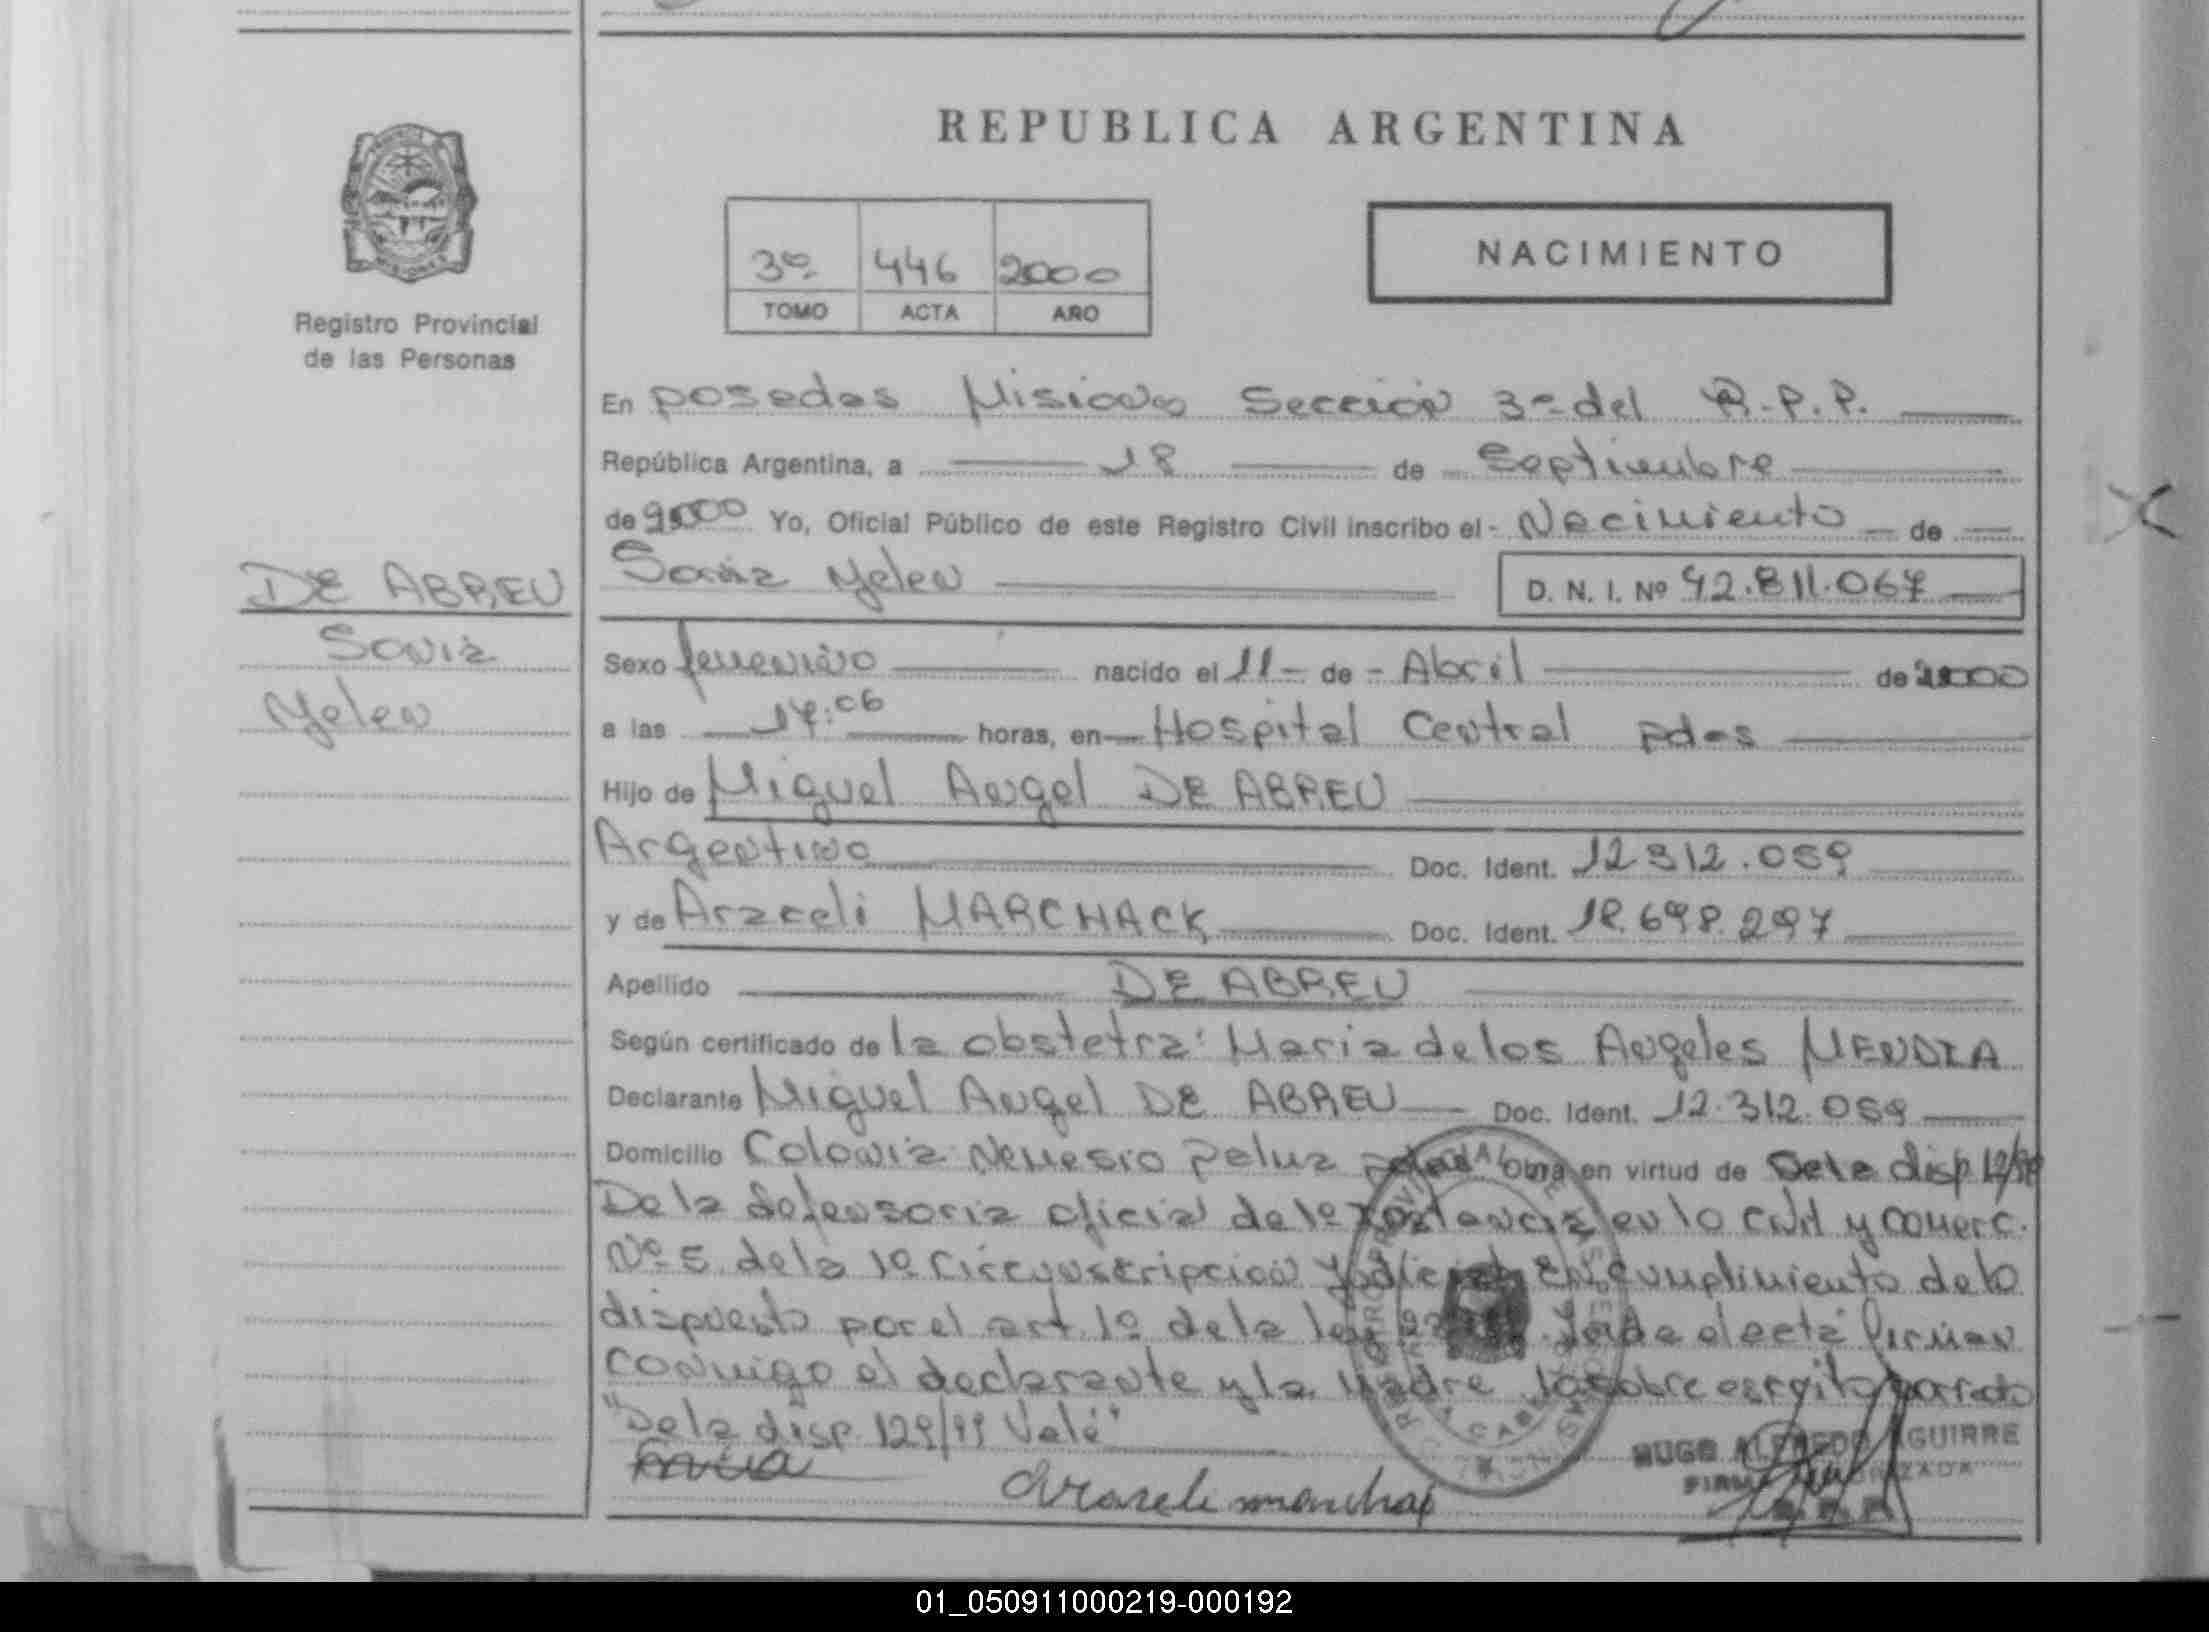 REPUBLICA ARGENTINA
3º 446 2000
TOMO ACTA AÑO
NACIMIENTO
Registro Provincial
de las Personas
En Posadas Misiones Sección 3º del R.P.P.
República Argentina, a 18 de Septiembre
de 2000 Yo, Oficial Público de este Registro Civil inscribo el - Nacimiento - de
DE ABREU
Sonia
Yelen
Sonia Yelen D. N. I. Nº 42.811.067
Sexo femenino nacido el 11 - de - Abril de 2000
a las 17:06 horas, en Hospital Central Pdas
Hijo de Miguel Angel DE ABREU
Argentino Doc. Ident. 12.312.059
y de Araceli MARCHACK Doc. Ident. 18.698.297
Apellido DE ABREU
Según certificado de la obstetra: Maria de los Angeles MENDIA
Declarante Miguel Angel DE ABREU Doc. Ident. 12.312.059
Domicilio Colonia Nemesio Obra en virtud de De la disp
De la defensoria oficial de 1º Instancia en lo civil y comerc.
Nº 5 de la 1º Circunscripcion Judicial En cumplimiento de lo
dispuesto por el art 1º de la ley el acta firman
conmigo el declarante y la Madre lo sobre escrito
"De la disp. 129/99 Vale"
HUGO ALFREDO AGUIRRE
FIRMA AUTORIZADA
01_050911000219-000192